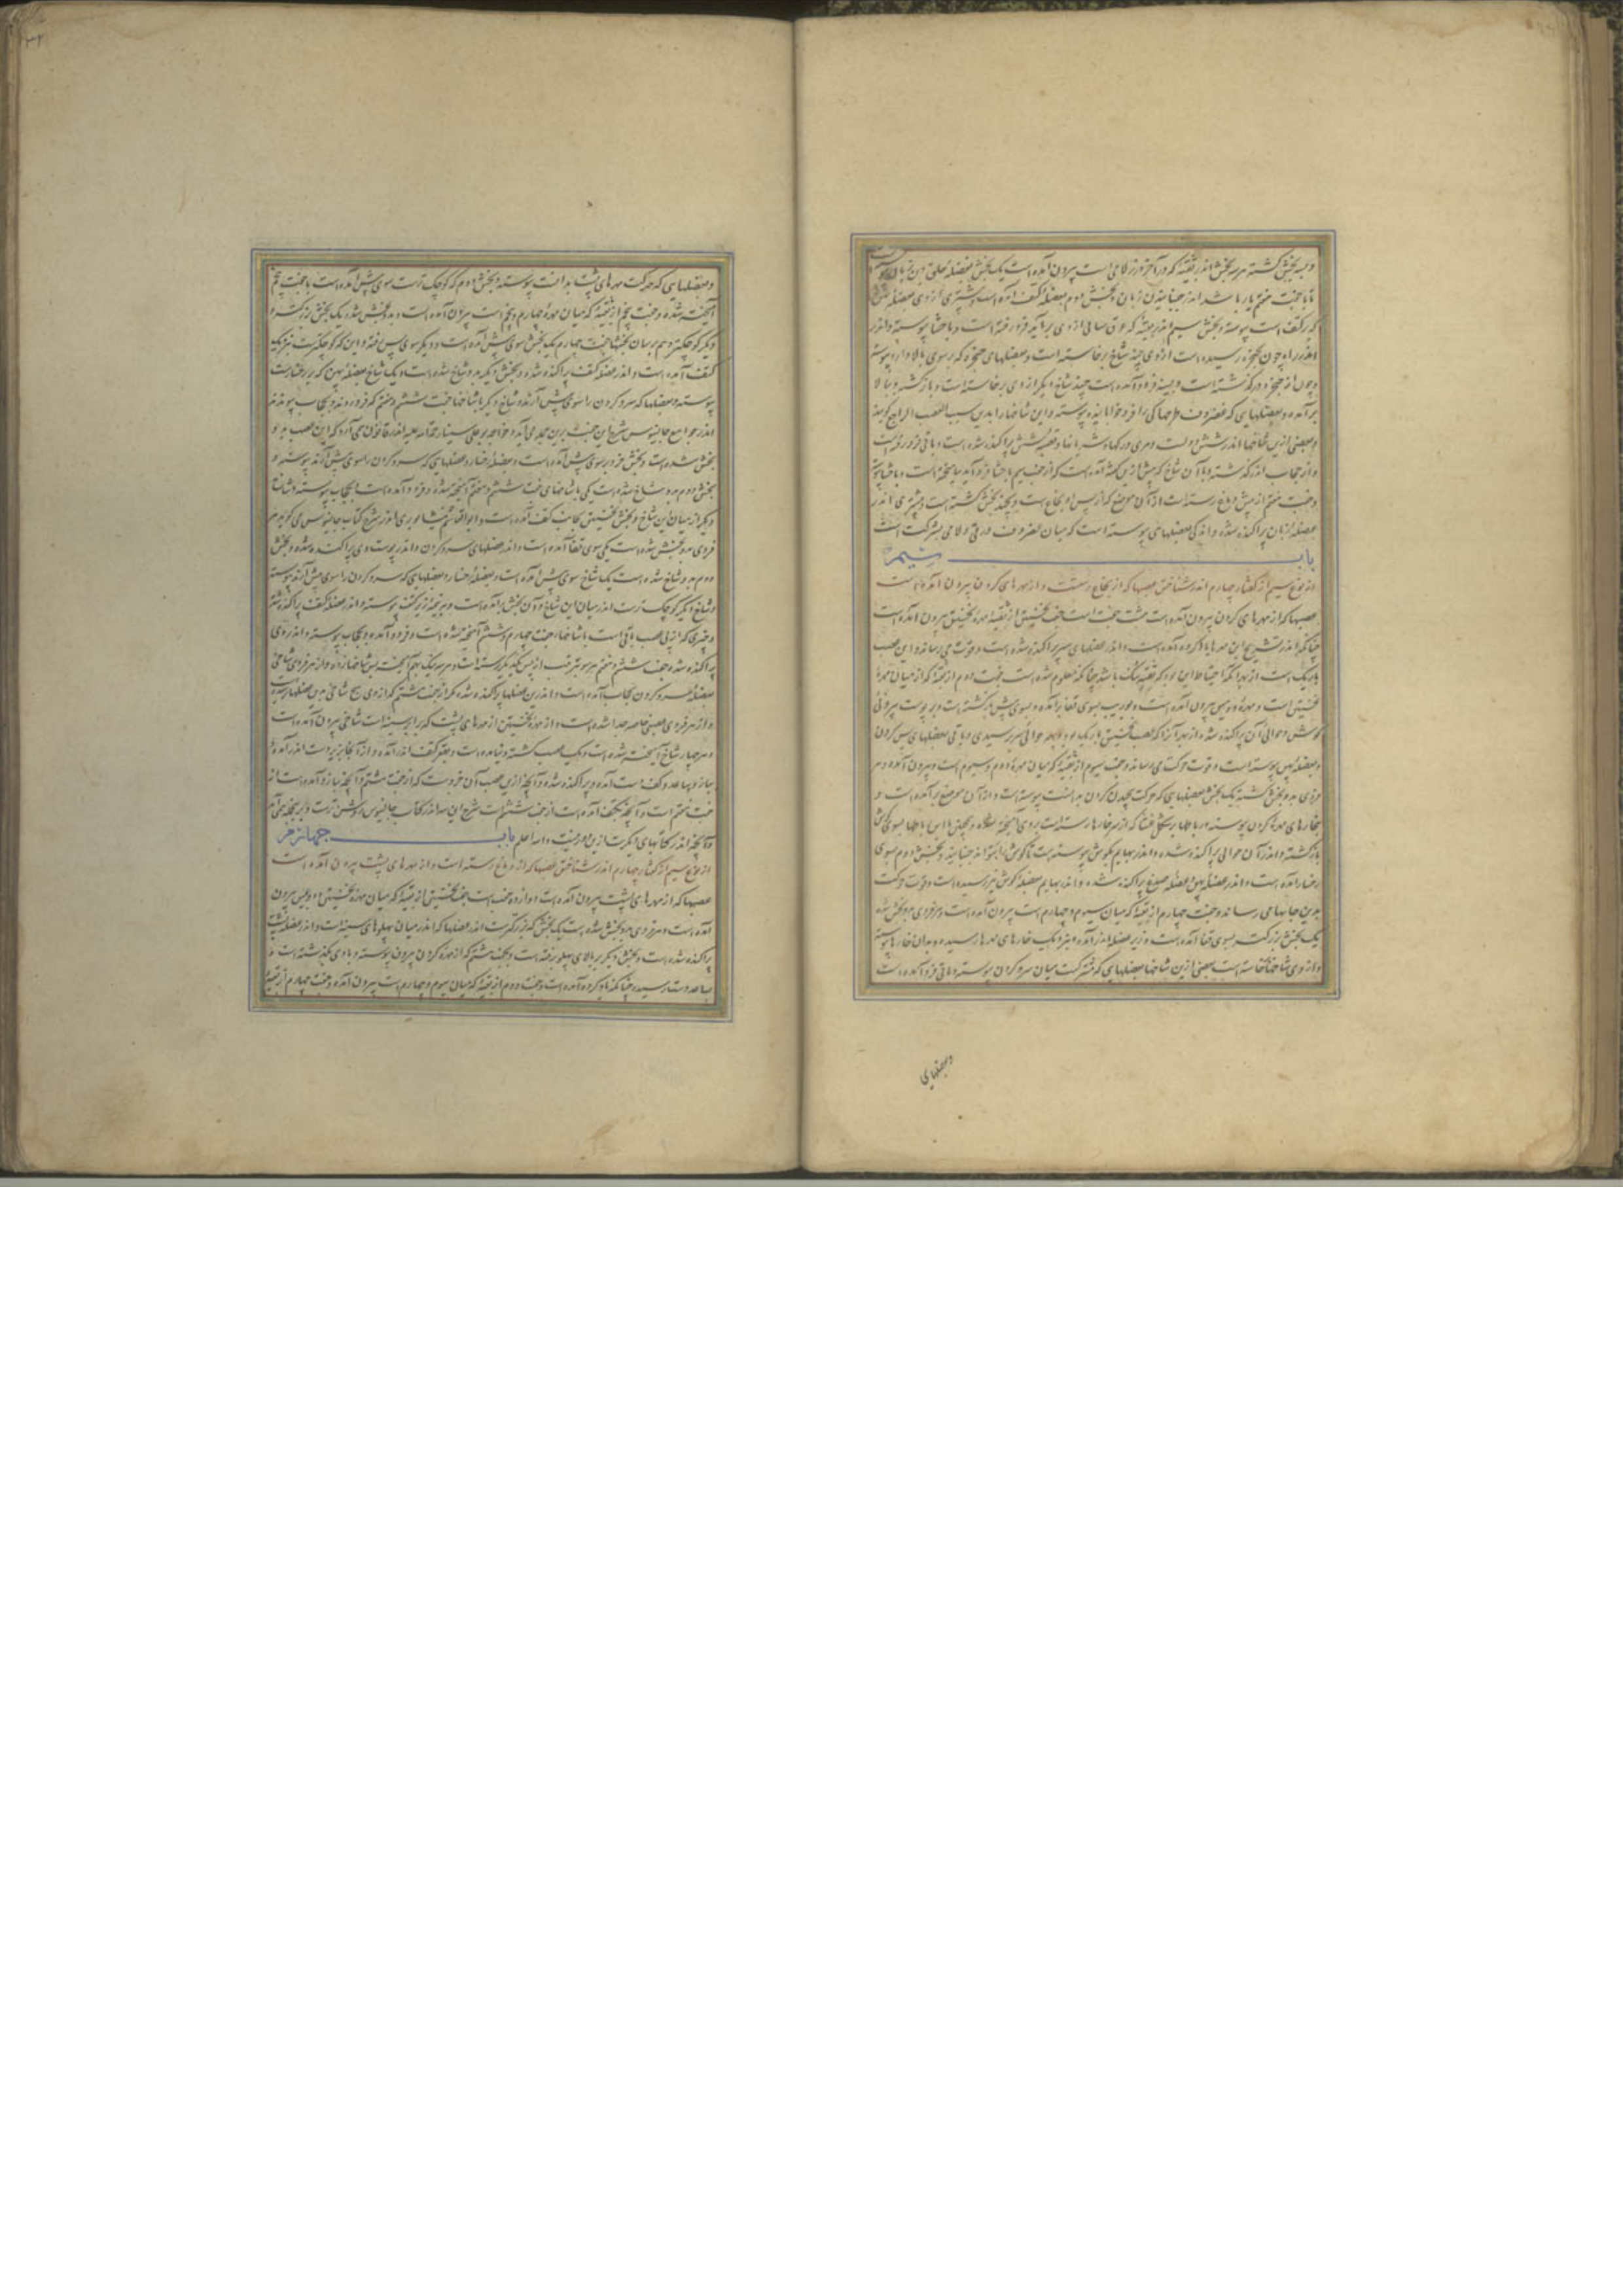 و بسه بخش گشته هر سه بخش اندر ثقبه که در آخر درز لامی است بیرون آمده است یک بخش بعضلهٔ حلق و بن زبان
تا با جفت هفتم یار باشد اندر جنبانیدن زبان و بخش دوم بعضلهٔ کتف آمده است و بیشتری از وی بعضله
که بر کتف است پیوسته و بخش سیم اندر ثقبه که عرق سباتی از وی بر آید فرو رفته است و با حشا پیوسته و اندر
اندر راه چون بحنجره رسیده است از وی چند شاخ برخاسته است و بعضلهای حنجره که بر سوی بالا دارد پیوسته
و چون از حنجره در گذشته است و بسینه فرود آمده است چند شاخ دیگر از وی برخاسته است و باز گشته و ببالا
بر آمده و بعضلهایی که غضروف طرجهالی را فرو خواباند پیوسته و این شاخها را بدین سبب العصب الراجع گویند
و بعضی ازین شاخها اندر شش و دل و مری و رگها و شریانها و قصبه شش پراکنده شده است و باقی فرو رفته است
و از حجاب اندر گذشته و با آن شاخ که پیش ازین گفته آمده است که از جفت سیم با حشا فرو آید بیامیخته است و با حشا پیوسته
و جفت هفتم از پیش دماغ رسته است از آن موضع که از پس او نخاع است و بچند بخش گشته است و بیشتری اندر
عضلهٔ زبان پراکنده شده و اندکی بعضلهایی پیوسته است که میان غضروف درقی و لامی مشترکست
باب سیم
از نوع سیم از گفتار چهارم اندر شناختن عصبها که از نخاع رستست و از مهرهای گردن بیرون آمده است
عصبها که از مهرهای گردن بیرون آمده است هشت جفت است جفت نخستین از ثقبهٔ مهرهٔ نخستین بیرون آمده است
چنانکه اندر تشریح این مهرها یاد کرده آمده است و اندر عضلهای سر پراکنده شده است و قوت می رساند و این عصب
باریک است از بهر آنکه احتیاط این بود که ثقبه تنگ باشد چنانکه معلوم شده است جفت دوم از ثقبه که از میان مهرهٔ
نخستین است و مهرهٔ دومین بیرون آمده است و بوریب بسوی قفا بر آمده و بسوی پیش باز گشته است و بر پوست بیرونی
گوش و حوالی آن پراکنده شده از بهر آنرا که عصب نخستین باریک بود و بهمه حوالی سر نرسیدی و باقی بعضلهای پس گردن
و بعضلهٔ پهن پیوسته است و قوت حرکت می رساند و جفت سیوم از ثقبه که میان مهرهٔ دوم و سیوم است بیرون آمده و هر
فردی بدو بخش گشته یک بخش بعضلهایی که حرکت پیچیدن گردن بدانست پیوسته است و از آن موضع بر آمده است و
بخارهای مهرهٔ گردن پیوسته
باز گشته و اندر آن حوالی پراکنده شده و اندر بهایم بگوش پیوسته است تا گوش را بتواند جنبانید و بخش دوم بسوی
رخسار آمده است و اندر عضلهٔ پهن و عضلهٔ صدغ پراکنده شده و اندر بهایم بعضلهٔ گوش نیز رسیده است و قوت حرکت
بدین جایها می رساند و جفت چهارم از ثقبه که میان سیوم و چهارم است بیرون آمده است و هر فردی بدو بخش شده
یک بخش بزرگتر بسوی قفا آمده است و زیر عضلها اندر آمده و نزدیک خارهای مهرها رسیده و بدان خارها پیوسته
و از وی شاخها خاسته است بعضی ازین شاخها بعضلهایی که مشترکست میان سر و گردن پیوسته و باقی فرو آمده است
وبعضلهای
۳۲
و بعضلهایی که حرکت مهرهای پشت بدانست پیوسته و بخش دوم که کوچک ترست سوی پیش آمده است با جفت پنجم
آمیخته شده و جفت پنجم از ثقبه که میان مهرهٔ چهارم و پنجم است بیرون آمده است و بدو بخش شده یک بخش بزرگتر و
دیگر کوچکتر و هم بر سان بخشهای جفت چهارم یک بخش سوی پیش آمده است و دیگر سوی پس رفته و این که کوچکترست نیز نزدیک
کتف آمده است و اندر عضلهٔ کتف پراکنده شده و بخش دیگر بدو شاخ شده است و یک شاخ بعضلهٔ پهن که بر رخسارست
پیوسته و بعضلها که سر و گردن را سوی پیش آرند و شاخ دیگر با شاخهای جفت ششم و هفتم که فرو روند و بحجاب پیوندند
و اندر جوامع جالینوس شرح این جفت برین جمله می آید و خواجه بو علی سینا رحمة الله علیه اندر قانون می آرد که این عصب بدو
بخش شده است و بخش فرد بر سوی پیش آمده است و بعضلهٔ رخسار و عضلهایی که سر و گردن را سوی پیش آرند پیوسته و
بخش دوم بدو شاخ شده است یکی با شاخهای جفت ششم و هفتم آمیخته شده و فرود آمده است و بحجاب پیوسته و شاخ
دیگر از میان این شاخ و بخش نخستین بجانب کتف آمده است و ابو القاسم نیشابوری اندر شرح کتاب جالینوس می گوید هر
فردی بدو بخش شده است یکی سوی قفا آمده است و اندر عضلهای سر و گردن و اندر پوست وی پراکنده شده و بخش
دوم بدو شاخ شده است یک شاخ سوی پیش آمده است و بعضلهٔ رخسار و بعضلهایی که سر و گردن را سوی پیش آرند پیوسته
و شاخ دیگر کوچک ترست اندر میان این شاخ و آن بخش بر آمده است و بر پنجهٔ زیر کتف پیوسته و اندر عضلهٔ کتف پراکنده شده
و جزوی که از پی عصب باقی است با شاخهای جفت چهارم و ششم آمیخته شده است و فرود آمده و بحجاب پیوسته و اندر وی
پراکنده شده جفت ششم و هفتم هر سه بترتیب از پس یکدیگر رسته است و هر سه نیک بهم آمیخته پس شاخها زده و از هر فردی شاخی
بعضلهٔ سر و گردن و بحجاب آمده است و اندرین عضلها پراکنده شده مگر از جفت هشتم که از وی هیچ شاخی بدین عضلها نرسیده
و از هر فردی عصبی خاصه جدا شده است و از مهرهٔ نخستین از مهرهای پشت که برابر سینه است شاخی بیرون آمده است
و هر چهار شاخ آمیخته شده است و یک عصب گشته و بقعر کتف اندر آمده و از آنجا بزیر دست اندر آمده و
ببازو و ساعد و کف دست آمده و پراکنده شده و آنچه ازین عصب آن فرودست که از جفت هشتم و آنچه ببازو آمده است از
جفت هفتم است و آنچه بکتف آمده است از جفت ششم است شرح این سه اندر کتاب جالینوس روشن ترست و برین جمله می آید
و آنچه اندر کتابهای دیگرست ازین دور نیست و الله اعلم باب چهارم
از نوع سیم از گفتار چهارم اندر شناختن عصبها که از دماغ رسته است و از مهرهای پشت بیرون آمده است
عصبها که از مهرهای پشت بیرون آمده است دوازده جفت است جفت نخستین از ثقبه که میان مهرهٔ نخستین و دومین بیرون
آمده است و هر فردی بدو بخش شده است یک بخش که بزرگترست اندر عضلها که اندر میان پهلوهای سینه است و اندر عضلهٔ پشت
پراکنده شده است و بخش دیگر بر بالای پهلو برفته است و بجفت هشتم که از مهرهٔ گردن بیرون پیوسته و با وی بگذشته است و
بساعد دست رسیده چنانکه یاد کرده آمده است و جفت دوم از ثقبه که میان سیوم و چهارم است بیرون آمده و جفت چهارم از ثقبه